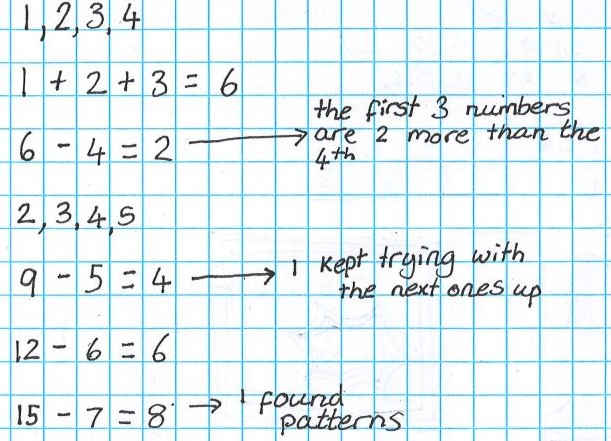 1, 2, 3, 4
1 + 2 + 3 = 6
6 - 4 = 2 → the first 3 numbers
are 2 more than the
4th
2, 3, 4, 5
9 - 5 = 4 → I kept trying with
the next ones up
12 - 6 = 6
15 - 7 = 8 → I found
patterns